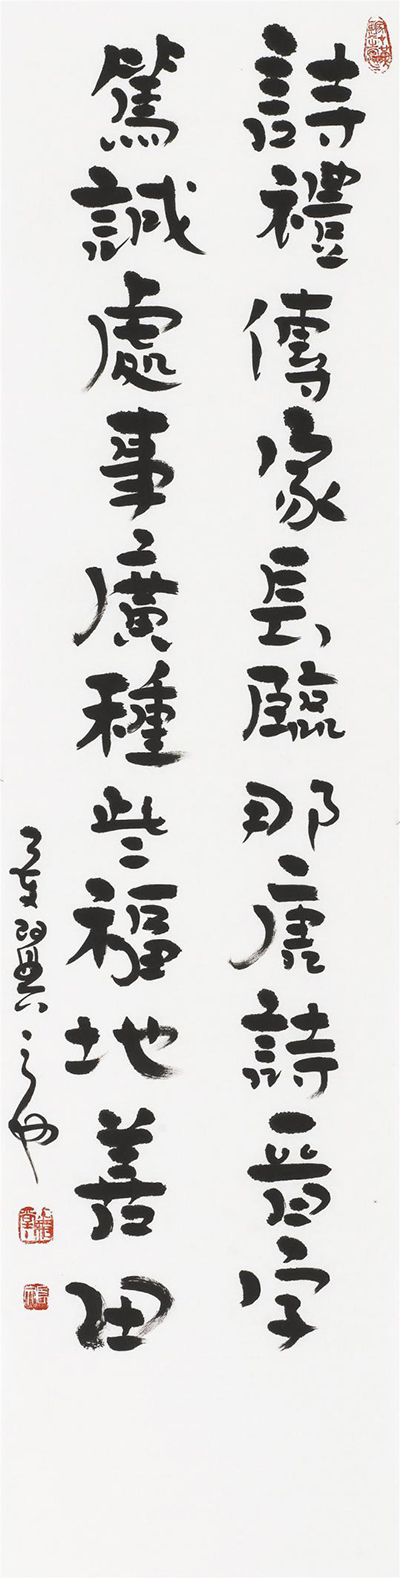 詩禮傳家長臨那唐詩晉字
篤誠處事廣種些福地善田